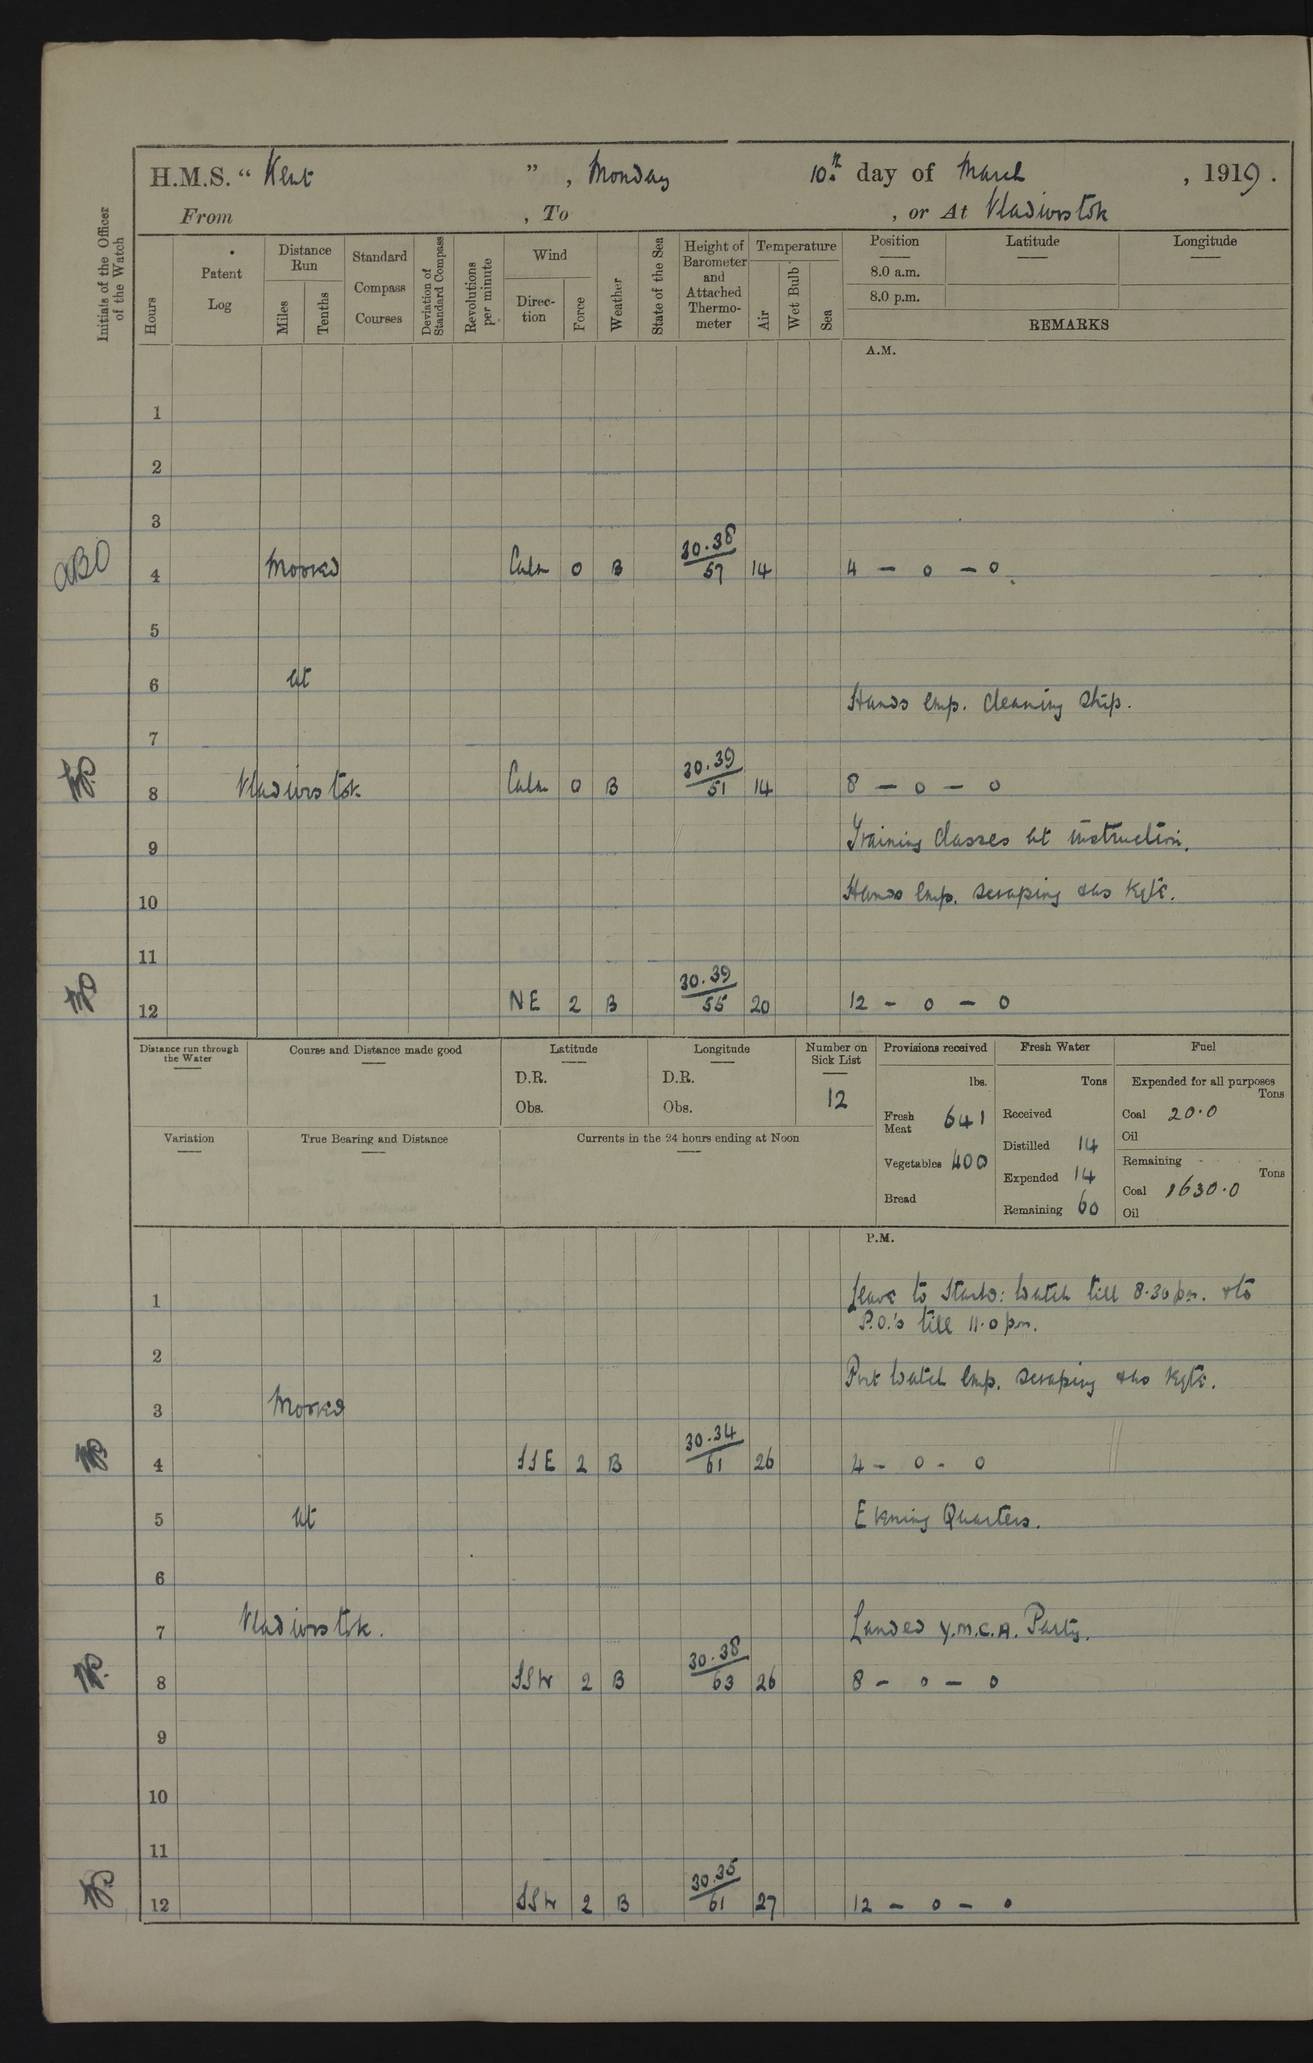 H.M.S. “ Kent ” , Monday 10th day of March , 1919 .
From , To , or At Vladivostok
Initials of the Officer of the Watch
Hours
Patent Log
Distance Run
Miles
Tenths
Standard Compass Courses
Deviation of Standard Compass
Revolutions per minute
Wind
Direc-tion
Force
Weather
State of the Sea
Height of Barometer and Attached Thermo-meter
Temperature
Air
Wet Bulb
Sea
Position Latitude Longitude
8.0 a.m.
8.0 p.m.
REMARKS
A.M.
1
2
3
4 Moored Calm 0 B 30.38/57 14 4 — 0 — 0
5
6 at
Hands emp. cleaning ship.
7
8 Vladivostok Calm 0 B 30.39/51 14 8 — 0 — 0
9 Training classes at instruction.
10 Hands emp. scraping
11
12 NE 2 B 30.39/55 20 12 — 0 — 0
Distance run through the Water
Course and Distance made good
Latitude
D.R.
Obs.
Longitude
D.R.
Obs.
Number on Sick List
12
Provisions received
lbs.
Fresh Meat 641
Vegetables 400
Bread
Fresh Water
Tons
Received
Distilled 14
Expended 14
Remaining 60
Fuel
Expended for all purposes
Tons
Coal 20.0
Oil
Remaining
Tons
Coal 1630.0
Oil
Variation
True Bearing and Distance
Currents in the 24 hours ending at Noon
P.M.
1 Leave to Starbd: Watch till 8.30 pm. & to
P.O.'s till 11.0 pm.
2
Port Watch emp. scraping
3 Moored
4 SSE 2 B 30.34/61 26 4 — 0 — 0
5 at Evening Quarters.
6
7 Vladivostok. Landed Y.M.C.A. Party.
8 SSW 2 B 30.38/63 26 8 — 0 — 0
9
10
11
12 SSW 2 B 30.35/61 27 12 — 0 — 0